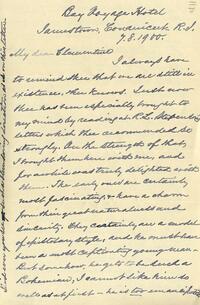 Bay Voyage Hotel
Jamestown, Conanicut R.I.
7.8.1900.
My dear Clementine
I always have
to remind thee that we are still in
existence, thee knows. Just now
thee has been especially brought to
my mind by reading R.L. Stevenson's
letters which thee recommended so
strongly. On the strength of that
I brought them here with me, and
for a while was truly delighted with
them. The early ones are certainly
most fascinating & have a charm
from their great naturalness and
sincerity. They certainly are a model
of epistolary style, and he must have
been a most captivating young man.
But somehow, he gets to be such a
Bohemian, I cannot like him so
well as at first - he is too emancipated